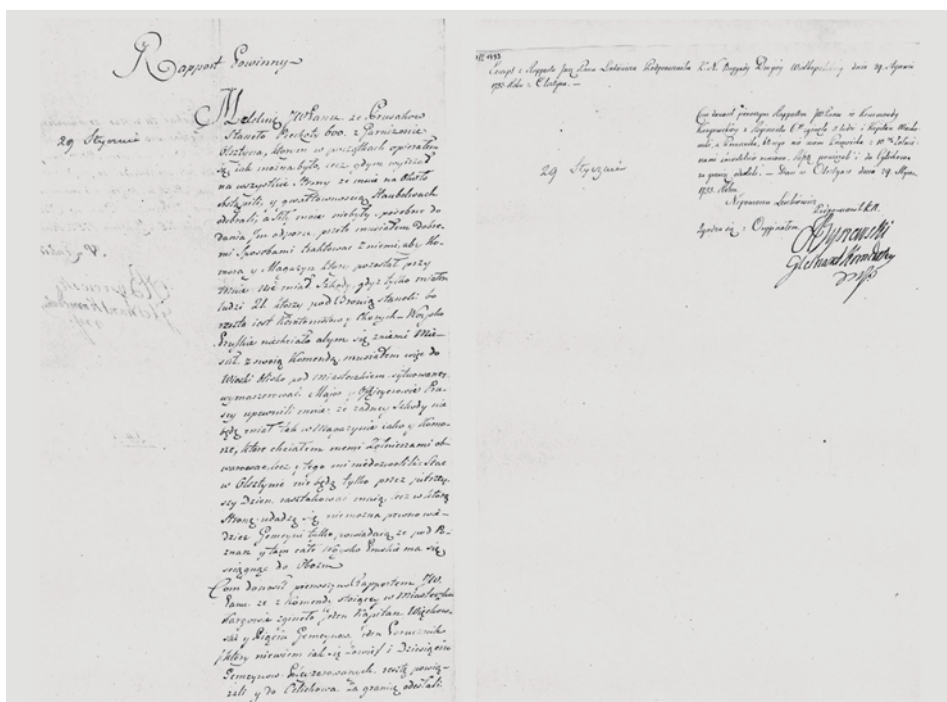 Rapport Powinny
29 Stycznia
Melduię JWPanu, że Prusaków
stanęło Piechoty 600. z Garnizonu
Olsztyna, którem w początkach opierałem
się jak można było, lecz gdym wyirzał
na wszystkie strony że mnie na około
obstąpili, y gwałtownością
odebrali, a siły moie niebyły podobne do
dania Im odporu, przeto musiałem dobre-
mi sposobami traktować z niemi, aby Ko-
mora y Magazyn które pozostał przy
mnie nie miał szkody, gdyż tylko miałem
ludzi 21. którzy pod bronią stanęli bo
reszta iest y Chorych. Woysko
Pruskie niechciało abym się z niemi mie-
ścił z moią Komendą, musiałem więc do
Wioski blisko pod miasteczkiem sytuowaney
wymaszerować. Major y Officyerowie Pru-
scy upewnili mnie, że żadney szkody nie
będę miał tak w Magazynie iako y Komo-
rze, które chciałem memi żołnierzami ob-
warować, lecz y tego mi niedozwolili. Stać
w Olsztynie nie będą tylko przez jutrzey-
szy Dzień, maią, lecz w którą
stronę udadzą się niemożna pewno wie-
dzieć Gemeyni tylko powiadaią że pod Po-
znań y tam całe Woysko Pruskie ma się
ściągnąć do Obozu
Com donosił pierwszym Rapportem JW
Panu że z Komendy stoiącey w Miasteczku
Kargowie zginęło jeden Kapitan Więckow-
ski y Pięciu Gemeynów, jeden Porucznik
który niewiem iak się zowie y Dziesięciu
Gemeynów resztę powią-
zali y do Cilichowa za granicę odesłali.
1793
Except z Rapportu Jmci Pana Lenkiewicza Podporucznika K. N. Brygady Drugiey Wielkopolskiey dnia 29. Stycznia
1793. Roku z Olsztyna. —
29 Stycznia
Com donosił pierwszym Rapportem JWPanu o Komendy
Kargowskiey z Regimentu 6º zginęło 5 ludzi i Kapitan Więckow-
ski, a Porucznik, którego nie wiem Nazwiska z 10. Żołnie-
rzami resztę powiązali i do Cylichowa
za granicę odesłali. — Dan w Olsztynie dnia 29. Stycz.
1793. Roku
Nepomucen Lenkiewicz
Podporucznik K.N.
Zgadza się z Oryginałem